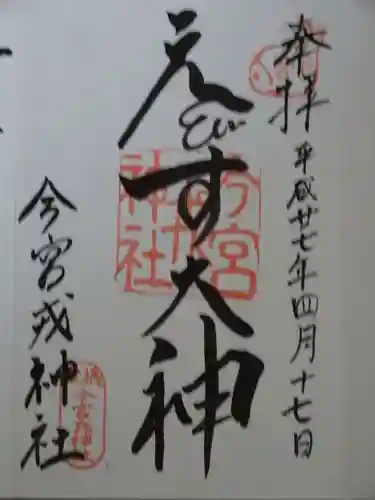 奉拝
平成廿七年四月十七日
えびす大神
今宮戎神社